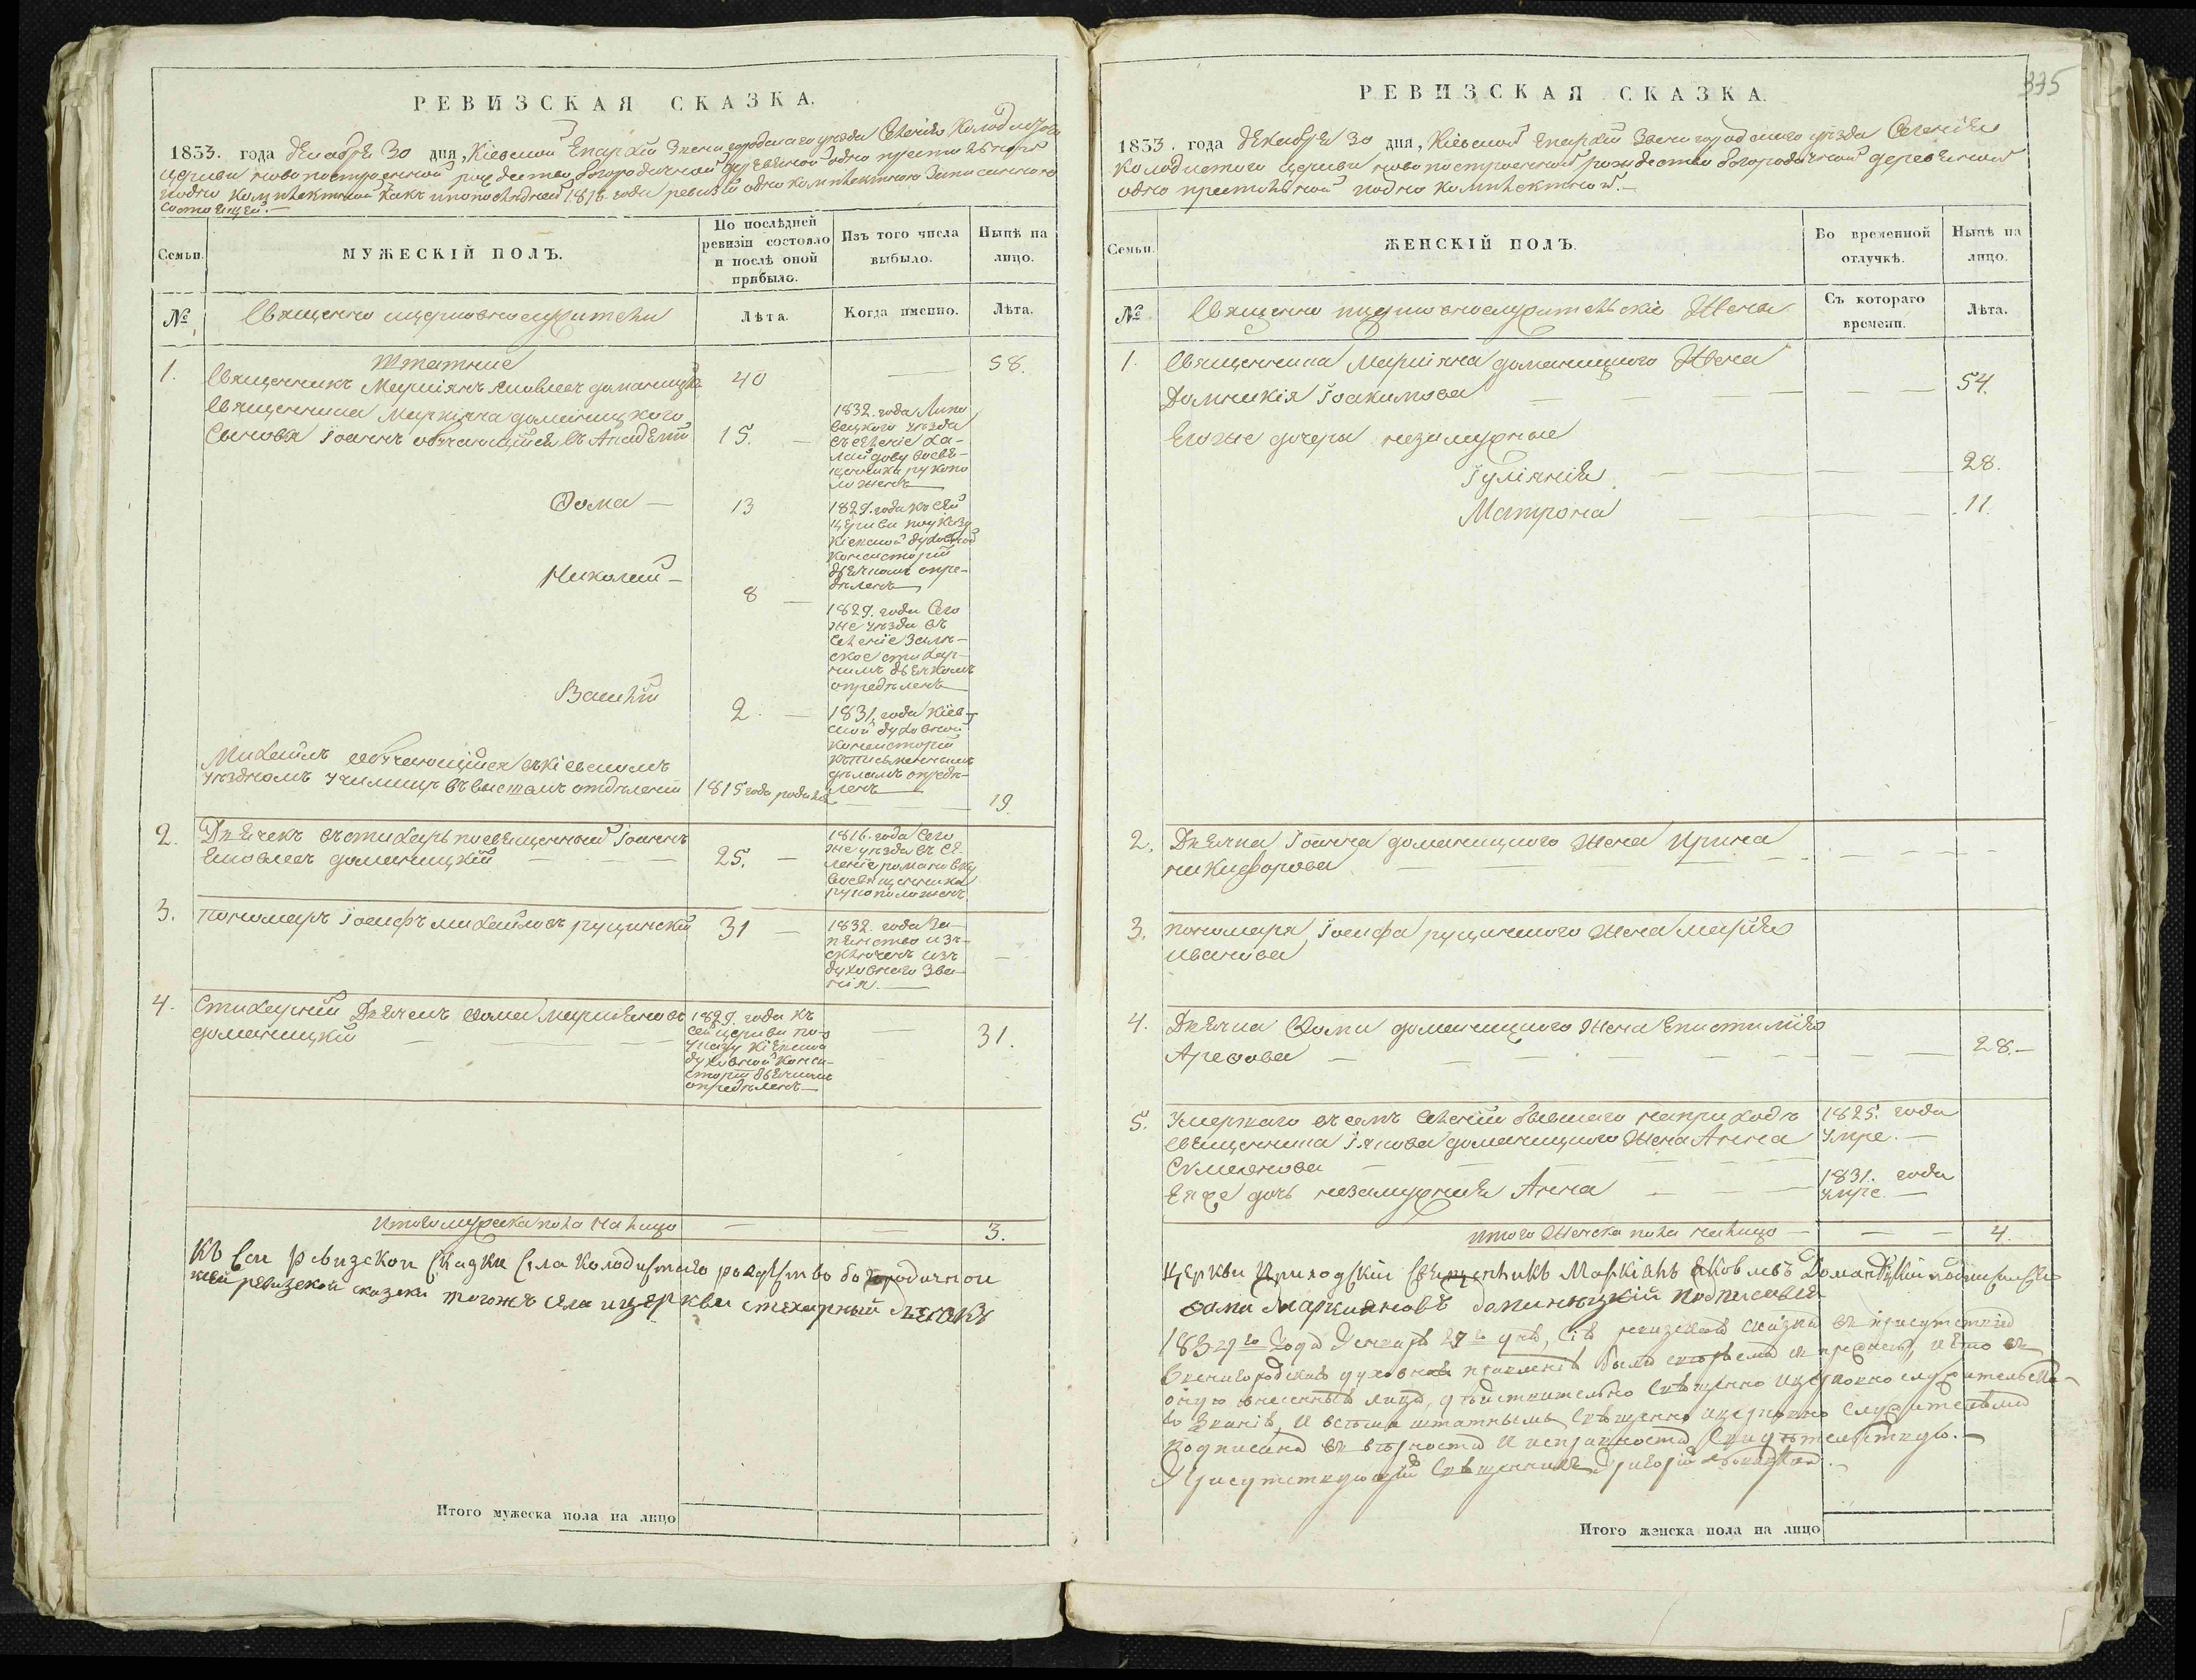 РЕВИЗСКАЯ СКАЗКА.
1833. года декабря 30 дня, Кіевской Епархіи Звенигородскаго уѣзда Селенія Колодистого
церкви новопостроенной рождество богородичной деревяной одно престольной
 одно комплектной какъ и по последней 1816 года ревизіи одно комплектного
состоящей.—
Семьи.
МУЖЕСКІЙ ПОЛЪ.
По послѣдней
ревизіи состояло
и послѣ оной
прибыло.
Изъ того числа
выбыло.
Нынѣ на
лицо.
№
Священно и церковнослужители
Лѣта.
Когда именно.
Лѣта.
Штатние
1. Священникъ Маркіянъ Яковлевъ доманицкій 40 — 58.
Священника Маркіяна доманицкого
Сыновья Іоаннъ обучающійся въ Академіи 15. —
1832. года Липо
вецкого уѣзда
въ селеніе
во свя-
щенника рукопо
ложенъ
Фома — 13
1829. года къ сей
церкви по указу
Кіевской духовной
консисторіи
дьячкомъ опре-
дѣленъ
Николай — 8 —
1829. года сего
же уѣзда въ
селеніе
ское стихар-
нимъ дьячкомъ
опредѣленъ
Василій 2. —
1831. года Кіев-
ской духовной
консисторіи
къ письменнымъ
дѣламъ опредѣ-
ленъ
Михаилъ обучающійся въ кіевскомъ
уѣздномъ училищѣ въ висшомъ отдѣленіи 1815 года родился — 19.
2. Дьячекъ въ стихарь посвященный Іоаннъ
Яковлевъ доманицкій — 25. —
1816. года сего
же уѣзда въ се-
леніе романовку
во священника
рукоположенъ
3. пономарь Іосифъ михайловъ рущинскій 31 —
1832. года за
пьянство из-
ключенъ изъ
духовного зва-
нія. —
4. Стихарный Дьячекъ Фома Маркіяновъ
доманицкій
1829. года къ
сей церкви по
указу Кіевской
духовной конси-
сторіи дьячкомъ
опредѣленъ —
31.
итого мужеска пола на лицо — — 3.
Къ сей ревизской сказки села Колодистаго рождество богородичной
 ревизской сказки тогожъ села и церкви стихарный дьячокъ
Итого мужеска пола на лицо
335
РЕВИЗСКАЯ СКАЗКА.
1833. года декабря 30 дня, Кіевской Епархіи Звенигородского уѣзда Селенія
Колодистого церкви новопостроенной рождество богородичной деревяной
одно престольной одно комплектной.—
Семьи.
ЖЕНСКІЙ ПОЛЪ.
Во временной
отлучкѣ.
Нынѣ на
лицо.
№
Священно и церковнослужительскіе Жена
Съ котораго
времени.
Лѣта.
1. Священника Маркіяна доманицкого Жена
Домникія Іоакимова — 54.
Его же дочеры незамужные
Іуліянія — 28.
Матрона — 11.
2. Дьячка Іоанна доманицкого Жена Ирина
никифорова —
3. пономаря Іосифа рущинского жена марія
иванова
4. Дьячка Фоми доманицкого Жена Епистимія
Арефова — 28.—
5. Умержаго въ семъ селеніи бывшаго на приходѣ
священника Іякова доманицкого Жена Анна
Семионова —
1825. года
умре. —
Ея же дочь незамужняя Анна —
1831. года
умре —
итого женска пола на лицо — — 4.
церкви приходскій священникъ Маркіанъ Яковлевъ Доманицкій подписался
Фома Маркияновъ Доманицкій подписался
 Года Января дня, Сія ревизская сказка въ присутствіи
Звенигородскаго духовнаго правленія была и что въ
оную внесенныя лица, дѣйствительно священно и церковно служительска-
го званія, и всѣми штатнымы священно и церковно служителями
подписана въ вѣрности и исправности свидѣтельствую.—
Присутствующій Священникъ Григорій
Итого женска пола на лицо